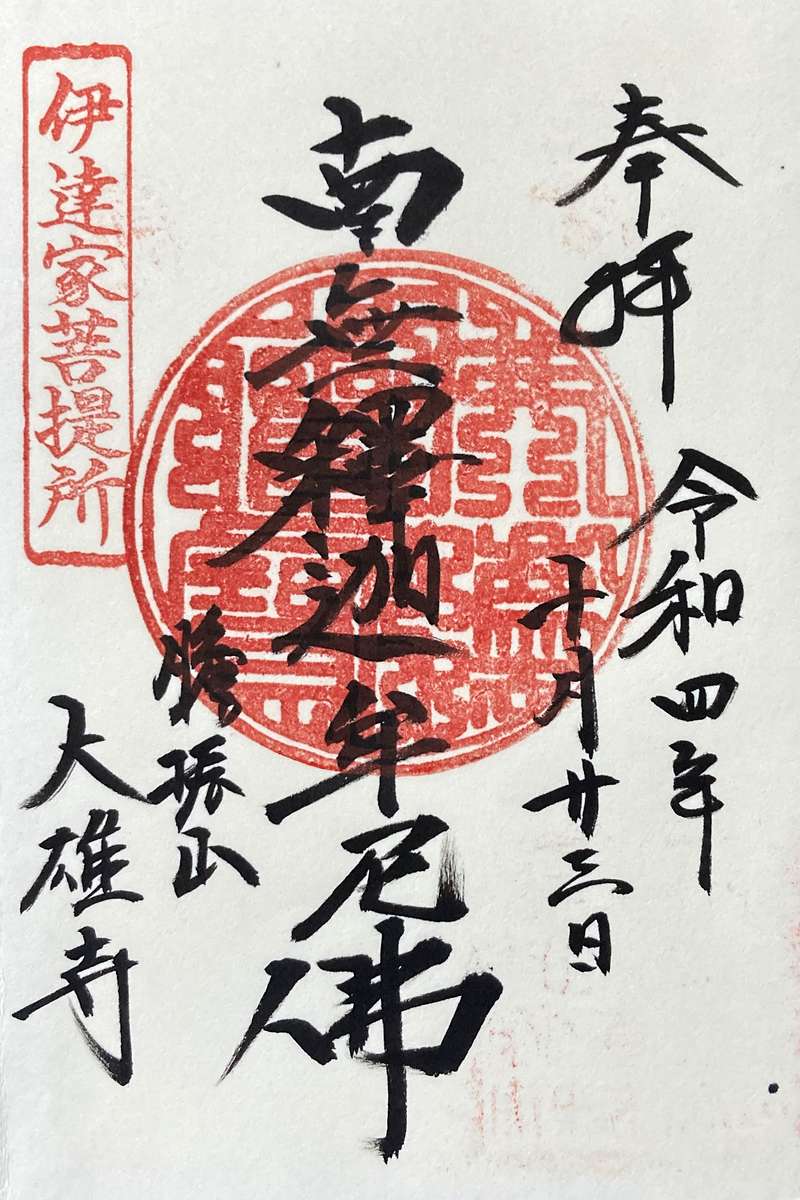 奉拝
令和四年
十月廿三日
南無釋迦牟尼佛
膽振山
大雄寺
伊達家菩提所